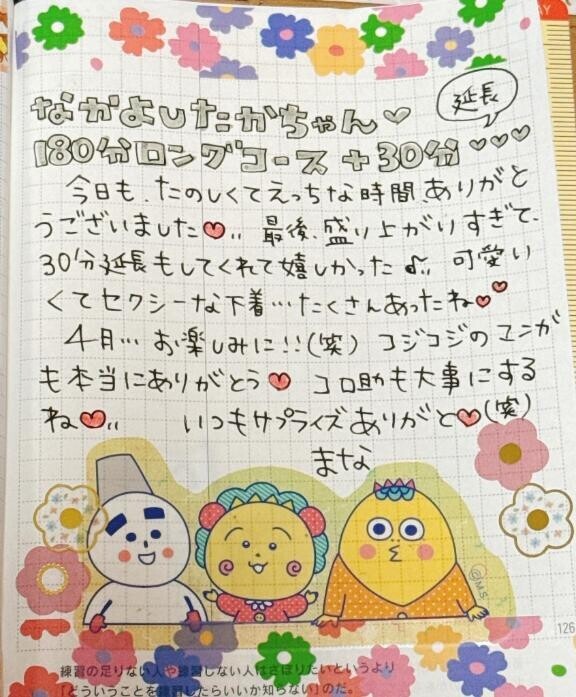 延長
なかよしたかちゃん♡
180分ロングコース+30分♡♡♡
今日も、たのしくてえっちな時間、ありがと
うございました♥.. 最後、盛り上がりすぎて、
30分延長もしてくれて嬉しかった♪.. 可愛い
くてセクシーな下着…たくさんあったね♥♥
4月…お楽しみに!!(笑) コジコジのマンガ
も本当にありがとう♥ コロ助も大事にする
ね♥.. いつもサプライズありがと♥(笑)
まな
©M.S
126
練習の足りない人や練習しない人はさぼりたいというより
「どういうことを練習したらいいか知らない」のだ。